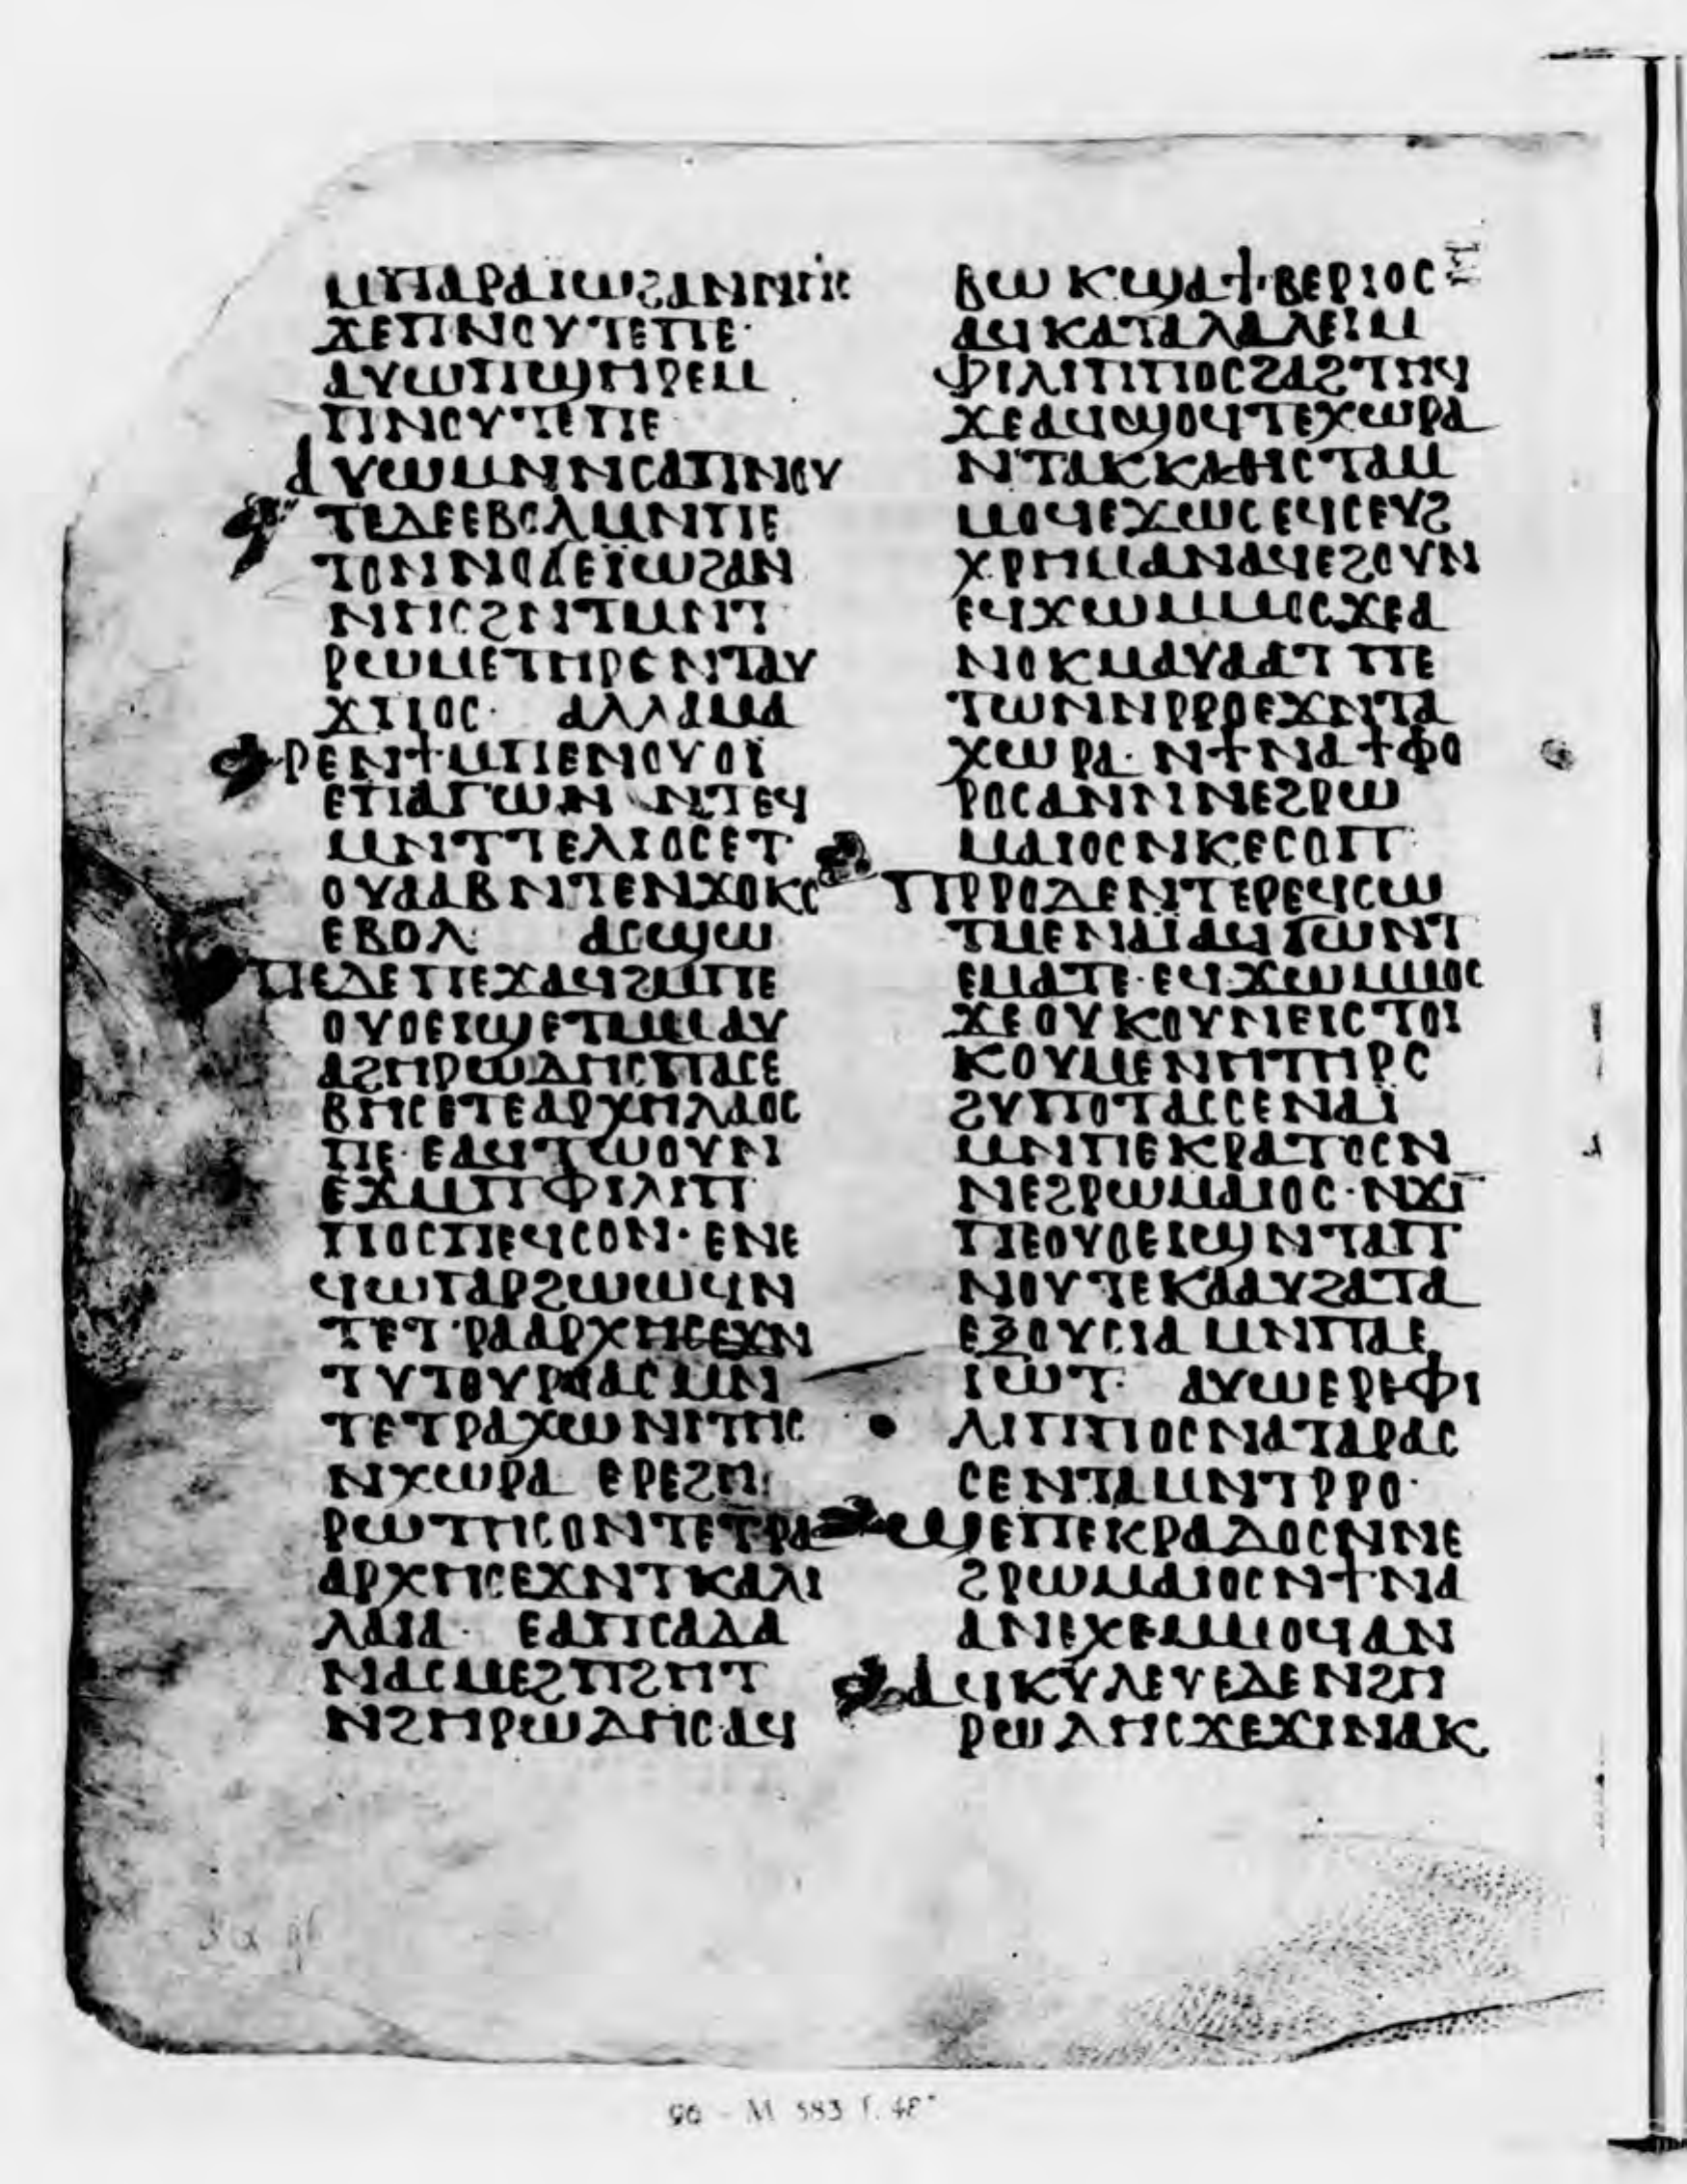 ⲙⲡⲁⲣⲁⲓⲱϩⲁⲛⲛⲏⲥ
ϫⲉⲡⲛⲟⲩⲧⲉⲡⲉ·
ⲁⲩⲱⲡϣⲏⲣⲉⲙ
ⲡⲛⲟⲩⲧⲉⲡⲉ
ⲁⲩⲱⲙⲛⲛⲥⲁⲡⲛⲟⲩ
ⲧⲉⲇⲉⲉⲃⲟⲗⲙⲛⲡⲉ
ⲧⲟⲛⲛⲟϭⲉⲓ̈ⲱϩⲁⲛ
ⲛⲏⲥϩⲛⲧⲙⲛⲧ
ⲣⲱⲙⲉⲧⲏⲣⲥⲛⲧⲁⲩ
ϫⲡⲟⲥ· ⲁⲗⲗⲁⲙⲁ
ⲣⲉⲛϯⲙⲡⲉⲛⲟⲩⲟⲓ̈
ⲉⲡⲁⲅⲱⲛ ⲛⲧⲉϥ
ⲙⲛⲧⲧⲉⲗⲓⲟⲥⲉⲧ
ⲟⲩⲁⲁⲃⲛⲧⲉⲛϫⲟⲕⲥ
ⲉⲃⲟⲗ: ⲁⲥϣⲱ
ⲡⲉⲇⲉⲡⲉϫⲁϥϩⲙⲡⲉ
ⲟⲩⲟⲉⲓϣⲉⲧⲙⲙⲁⲩ
ⲁϩⲏⲣⲱⲇⲏⲥⲡⲁⲥⲉ
ⲃⲏⲥⲉⲧⲉⲁⲣⲭⲏⲗⲁⲟⲥ
ⲡⲉ· ⲉⲁϥⲧⲱⲟⲩⲛ
ⲉϫⲙⲡⲫⲓⲗⲓⲡ
ⲡⲟⲥⲡⲉϥⲥⲟⲛ· ⲉⲛⲉ
ϥⲱⲅⲁⲣϩⲱⲱϥⲛ
ⲧⲉⲧⲣⲁⲁⲣⲭⲏⲥⲉϫⲛ
ⲧⲩⲧⲟⲩⲣⲁⲁⲥⲙⲛ
ⲧⲉⲧⲣⲁⲭⲱⲛⲓⲧⲏⲥ
ⲛⲭⲱⲣⲁ ⲉⲣⲉϩⲏ
ⲣⲱⲧⲏⲥⲟⲛⲧⲉⲧⲣⲁ
ⲁⲣⲭⲏⲥⲉϫⲛⲧⲕⲁⲗⲓ
ⲗⲁⲓⲁ· ⲉⲁⲡⲥⲁⲇⲁ
ⲛⲁⲥⲙⲉϩⲡϩⲏⲧ
ⲛϩⲏⲣⲱⲇⲏⲥ·ⲁϥ
ⲃⲱⲕϣⲁϯ·ⲃⲉⲣⲓⲟⲥ
ⲁϥⲕⲁⲧⲁⲗⲁⲗⲉⲓⲙ
ⲫⲓⲗⲓⲡⲡⲟⲥϩⲁϩⲧⲏϥ
ϫⲉⲁϥϣⲟϥⲧⲉⲭⲱⲣⲁ
ⲛⲧⲁⲕⲕⲁⲑⲓⲥⲧⲁⲙ
ⲙⲟϥⲉϫⲱⲥⲉϥⲥⲉⲩϩ
ⲭⲣⲏⲙⲁⲛⲁϥⲉϩⲟⲩⲛ
ⲉϥϫⲱⲙⲙⲟⲥϫⲉⲁ
ⲛⲟⲕⲙⲁⲩⲁⲁⲧⲡⲉ
ⲧⲱⲛⲛⲣⲣⲟⲉϫⲛⲧⲁ
ⲭⲱⲣⲁ· ⲛϯⲛⲁϯⲫⲟ
ⲣⲟⲥⲁⲛⲛⲛⲉϩⲣⲱ
ⲙⲁⲓⲟⲥⲛⲕⲉⲥⲟⲡ·
ⲡⲣⲣⲟⲇⲉⲛⲧⲉⲣⲉϥⲥⲱ
ⲧⲙⲉⲛⲁⲓ̈ⲁϥϭⲱⲛⲧ
ⲉⲙⲁⲧⲉ·ⲉϥϫⲱⲙⲙⲟⲥ
ϫⲉⲟⲩⲕⲟⲩⲛⲉⲓⲥⲧⲟⲓ
ⲕⲟⲩⲙⲉⲛⲏⲧⲏⲣⲥ
ϩⲩⲡⲟⲧⲁⲥⲥⲉⲛⲁⲓ̈
ⲙⲛⲡⲉⲕⲣⲁⲧⲟⲥⲛ
ⲛⲉϩⲣⲱⲙⲁⲓⲟⲥ·ⲛϫⲓ
ⲡⲉⲟⲩⲟⲉⲓϣⲛⲧⲁⲡ
ⲛⲟⲩⲧⲉⲕⲁⲁⲩϩⲁⲧⲁ
ⲉⲝⲟⲩⲥⲓⲁⲙⲛⲡⲁⲉ
ⲓⲱⲧ· ⲁⲩⲱⲉⲣⲉⲫⲓ
ⲗⲓⲡⲡⲟⲥⲛⲁⲧⲁⲣⲁⲥ
ⲥⲉⲛⲧⲁⲙⲛⲧⲣⲣⲟ·
ϣⲉⲡⲉⲕⲣⲁⲇⲟⲥⲛⲛⲉ
ϩⲣⲱⲙⲁⲓⲟⲥⲛϯⲛⲁ
ⲁⲛⲉⲭⲉⲙⲙⲟϥⲁⲛ
ⲁϥⲕⲩⲗⲉⲩⲉⲇⲉⲛϩⲏ
ⲣⲱⲇⲏⲥϫⲉϫⲓⲛⲁⲕ
90 - M 583 f. 48ᵛ